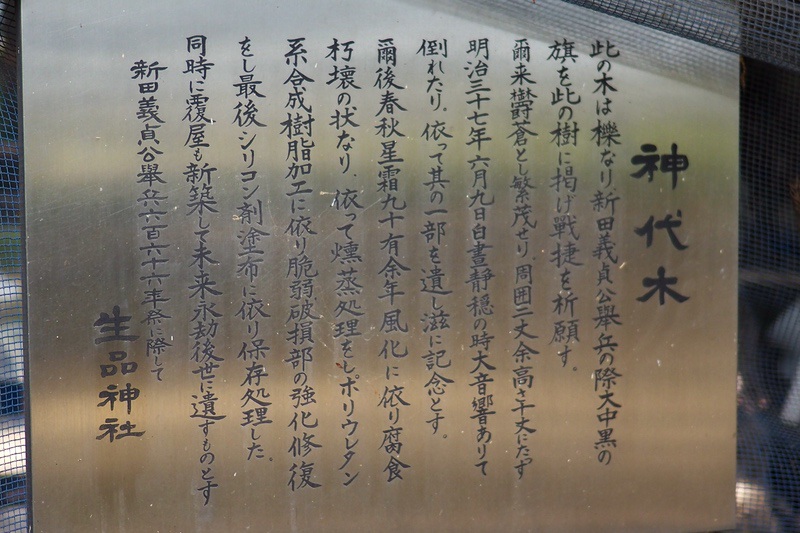 神代木
此の木は櫟なり、新田義貞公擧兵の際大中黒の
旗を此の樹に掲げ戰捷を祈願す。
爾来欝蒼とし繁茂せり、周囲二丈余高さ千丈にたず
明治三十七年六月九日白晝靜穏の時大音響ありて
倒れたり、依って其の一部を遺し滋に記念とす。
爾後春秋星霜九十有余年風化に依り腐食
朽壊の状なり、依って燻蒸処理をしポリウレタン
系合成樹脂加工に依り脆弱破損部の強化修復
をし最後シリコン剤塗布に依り保存処理した。
同時に覆屋も新築して未来永劫後世に遺すものとす
新田義貞公擧兵六百六十六年祭に際して
生品神社